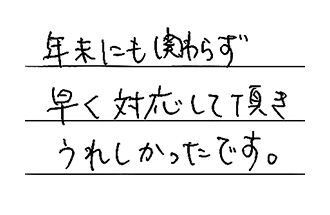 年末にも関わらず
早く対応して頂き
うれしかったです。